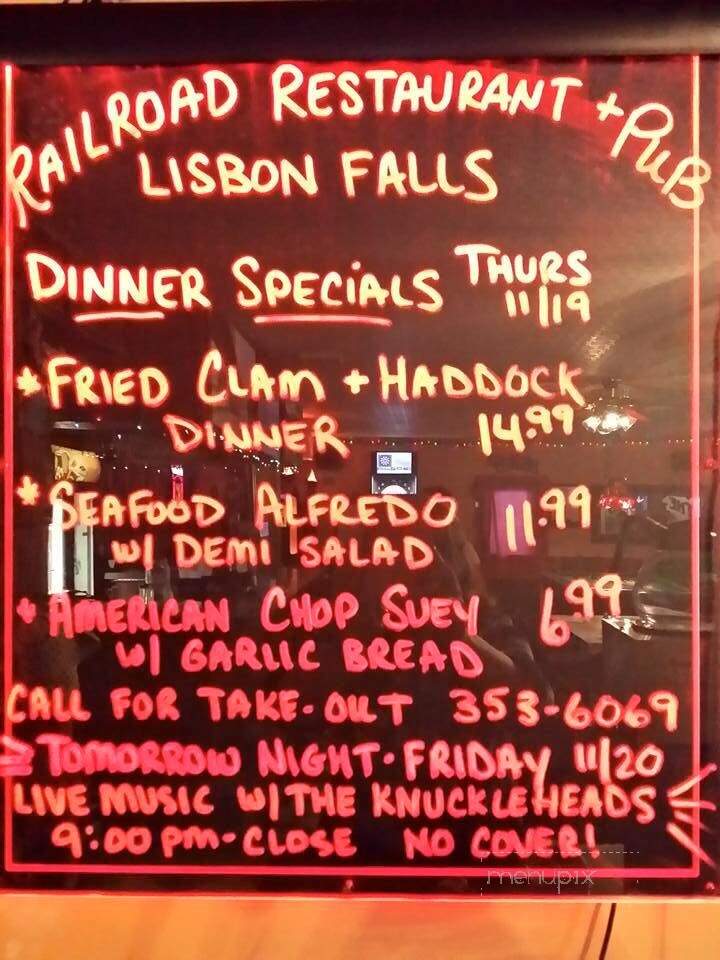 RAILROAD RESTAURANT + PUB
LISBON FALLS
DINNER SPECIALS THURS
11/19
*FRIED CLAM + HADDOCK
DINNER 14.99
*SEAFOOD ALFREDO 11.99
W/ DEMI SALAD
*AMERICAN CHOP SUEY 6.99
W/ GARLIC BREAD
CALL FOR TAKE-OUT 353-6069
TOMORROW NIGHT-FRIDAY 11/20
LIVE MUSIC W/ THE KNUCKLEHEADS
9:00 PM-CLOSE NO COVER!
menupix